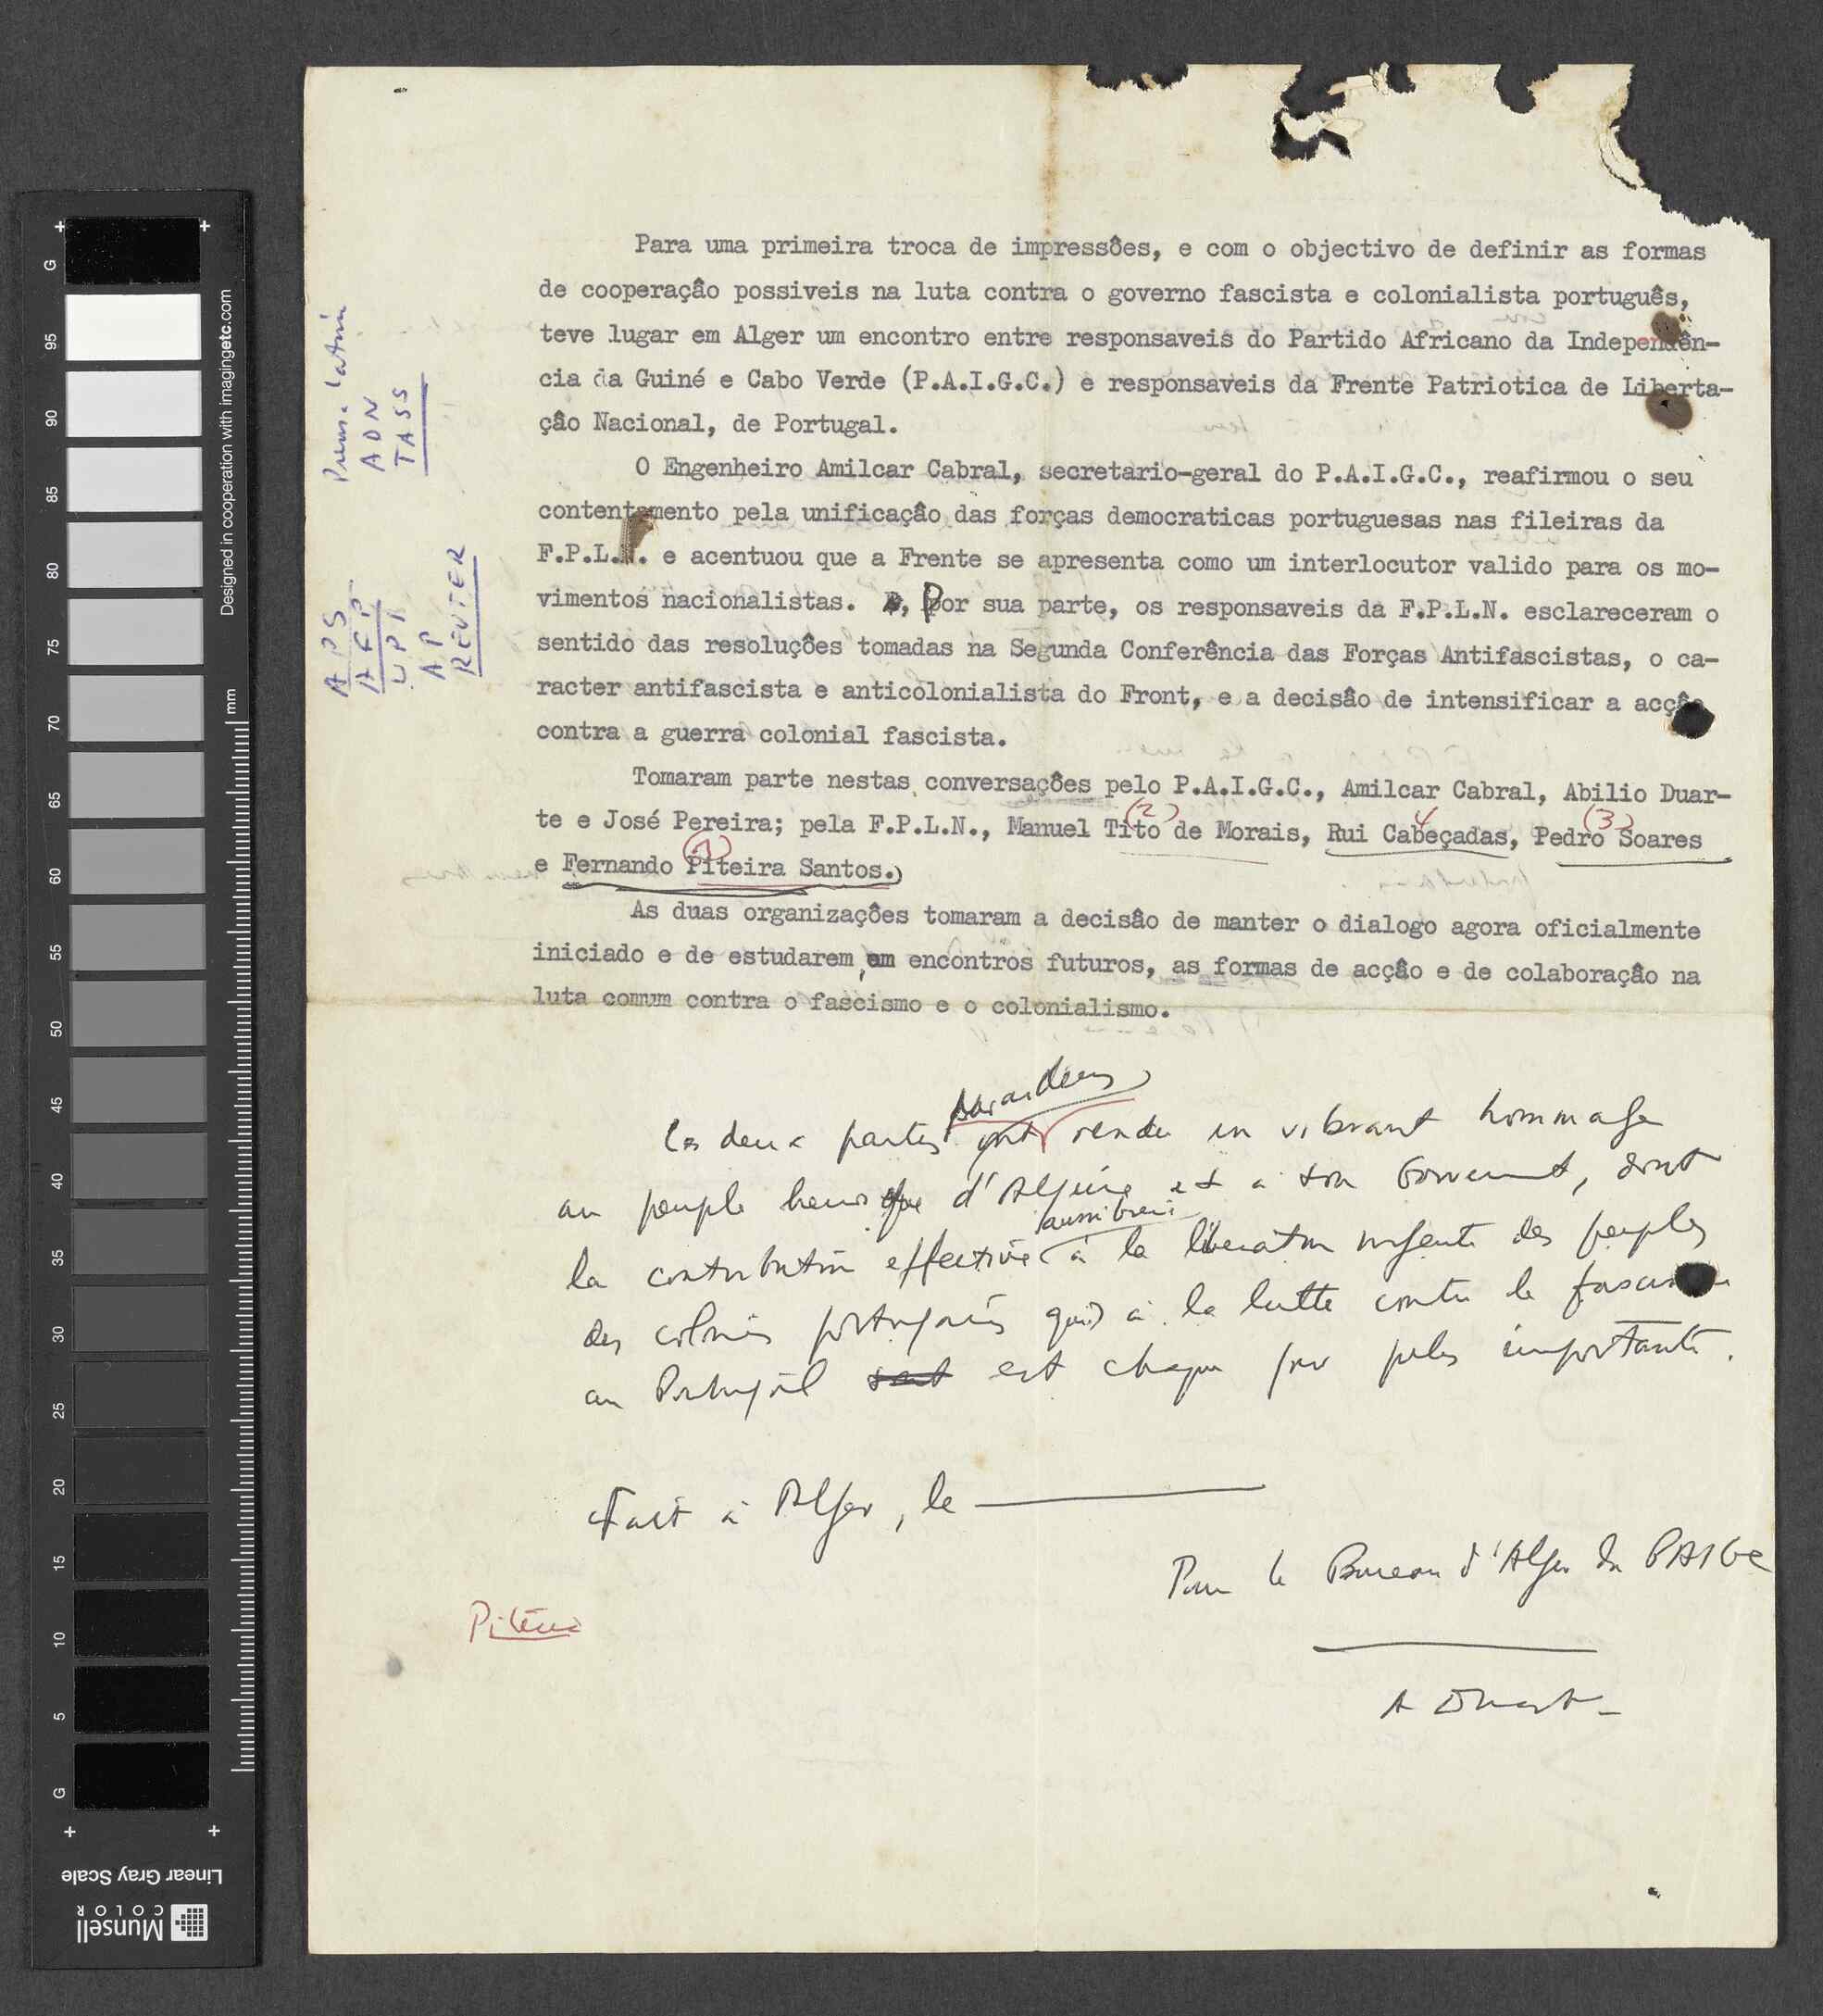 Para uma primeira troca de impressões, e com o objectivo de definir as formas
de cooperação possiveis na luta contra o governo fascista e colonialista português,
teve lugar em Alger um encontro entre responsaveis do Partido Africano da Independên-
cia da Guiné e Cabo Verde (P.A.I.G.C.) e responsaveis da Frente Patriotica de Liberta-
ção Nacional, de Portugal.
O Engenheiro Amilcar Cabral, secretario-geral do P.A.I.G.C., reafirmou o seu
contentamento pela unificação das forças democraticas portuguesas nas fileiras da
F.P.L.N. e acentuou que a Frente se apresenta como um interlocutor valido para os mo-
vimentos nacionalistas. Por sua parte, os responsaveis da F.P.L.N. esclareceram o
sentido das resoluções tomadas na Segunda Conferência das Forças Antifascistas, o ca-
racter antifascista e anticolonialista do Front, e a decisão de intensificar a acção
contra a guerra colonial fascista.
Tomaram parte nestas conversações pelo P.A.I.G.C., Amilcar Cabral, Abilio Duar-
(2) 4 (3)
te e José Pereira; pela F.P.L.N., Manuel Tito de Morais, Rui Cabeçadas, Pedro Soares
(1)
e Fernando Piteira Santos.)
As duas organizações tomaram a decisão de manter o dialogo agora oficialmente
iniciado e de estudarem, em encontros futuros, as formas de acção e de colaboração na
luta comum contra o fascismo e o colonialismo.
Les deux parties ont rendu un vibrant hommage
au peuple heroique d'Algérie et à son Gouvernement, dont
aussi bien
la contribution effective à la liberation urgente des peuples
des colonies portugaises qu'à la lutte contre le fascisme
au Portugal sont est chaque jour plus importante.
Fait à Alger, le
Pour le Bureau d'Alger du PAIGC
Piteira
A Duarte
Prensa Latina
ADN
TASS
APS
AFP
UPI
AP
REUTER
Designed in cooperation with imagingetc.com
mm
G
95
90
85
80
75
70
65
60
55
50
45
40
35
30
25
20
15
10
5
G
Linear Gray Scale
Munsell
COLOR